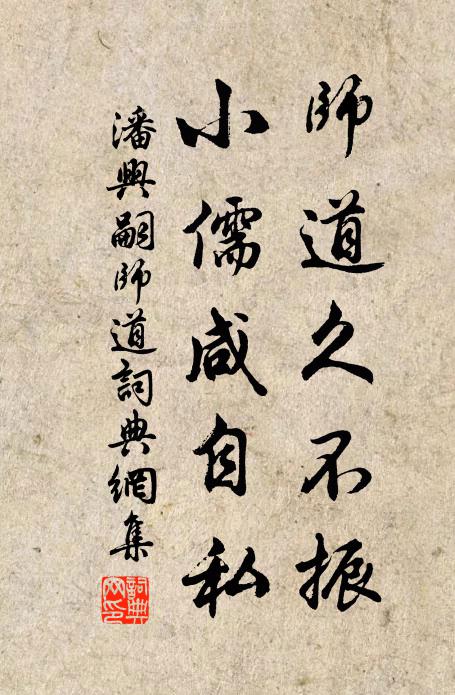 師道久不振
小儒咸自私
潘興嗣師道詞典網集
詞典網印